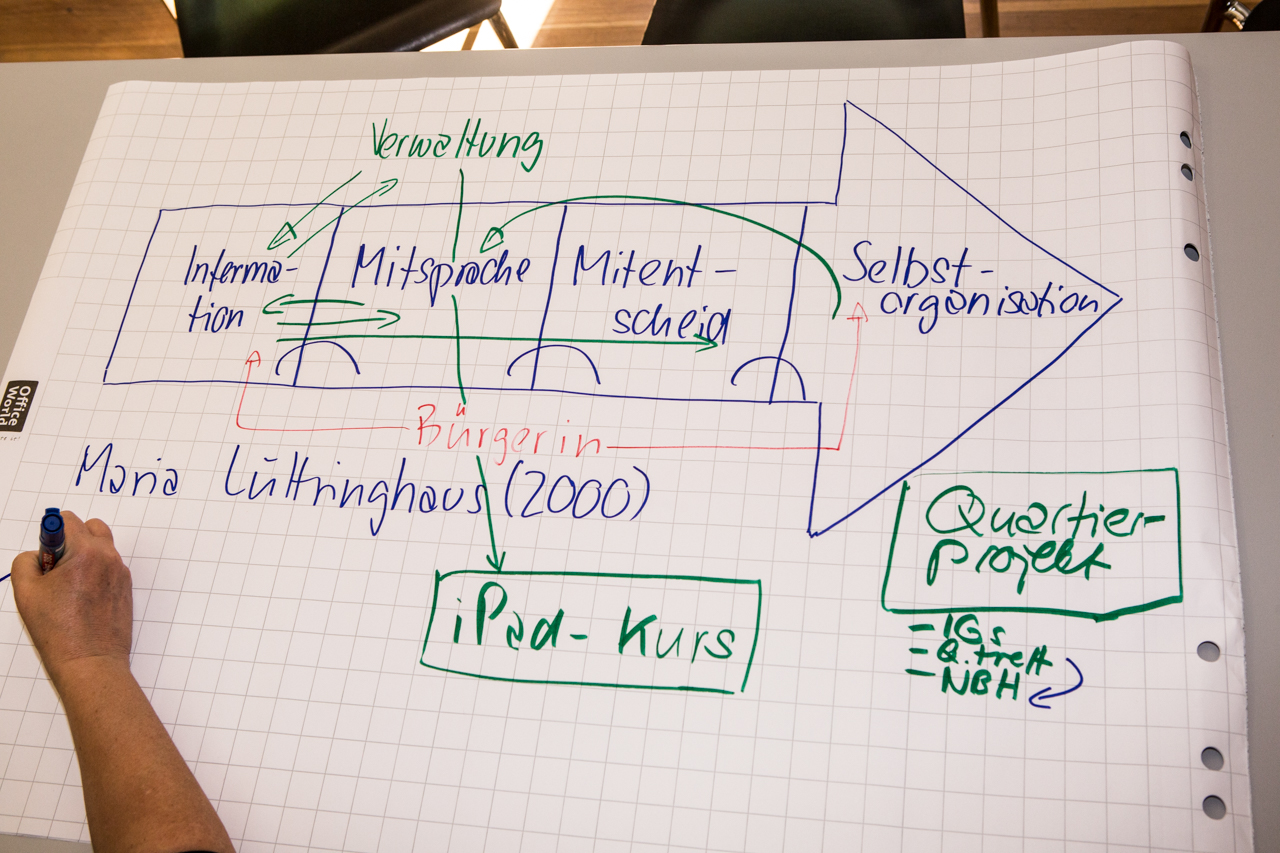 Verwaltung
Informa-
tion
Mitsprache
Mitent-
scheid
Selbst-
organisation
Bürgerin
Maria Lüttringhaus (2000)
iPad-Kurs
Quartier-
projekt
- IGs
- Q.treff
- NBH
Office
World